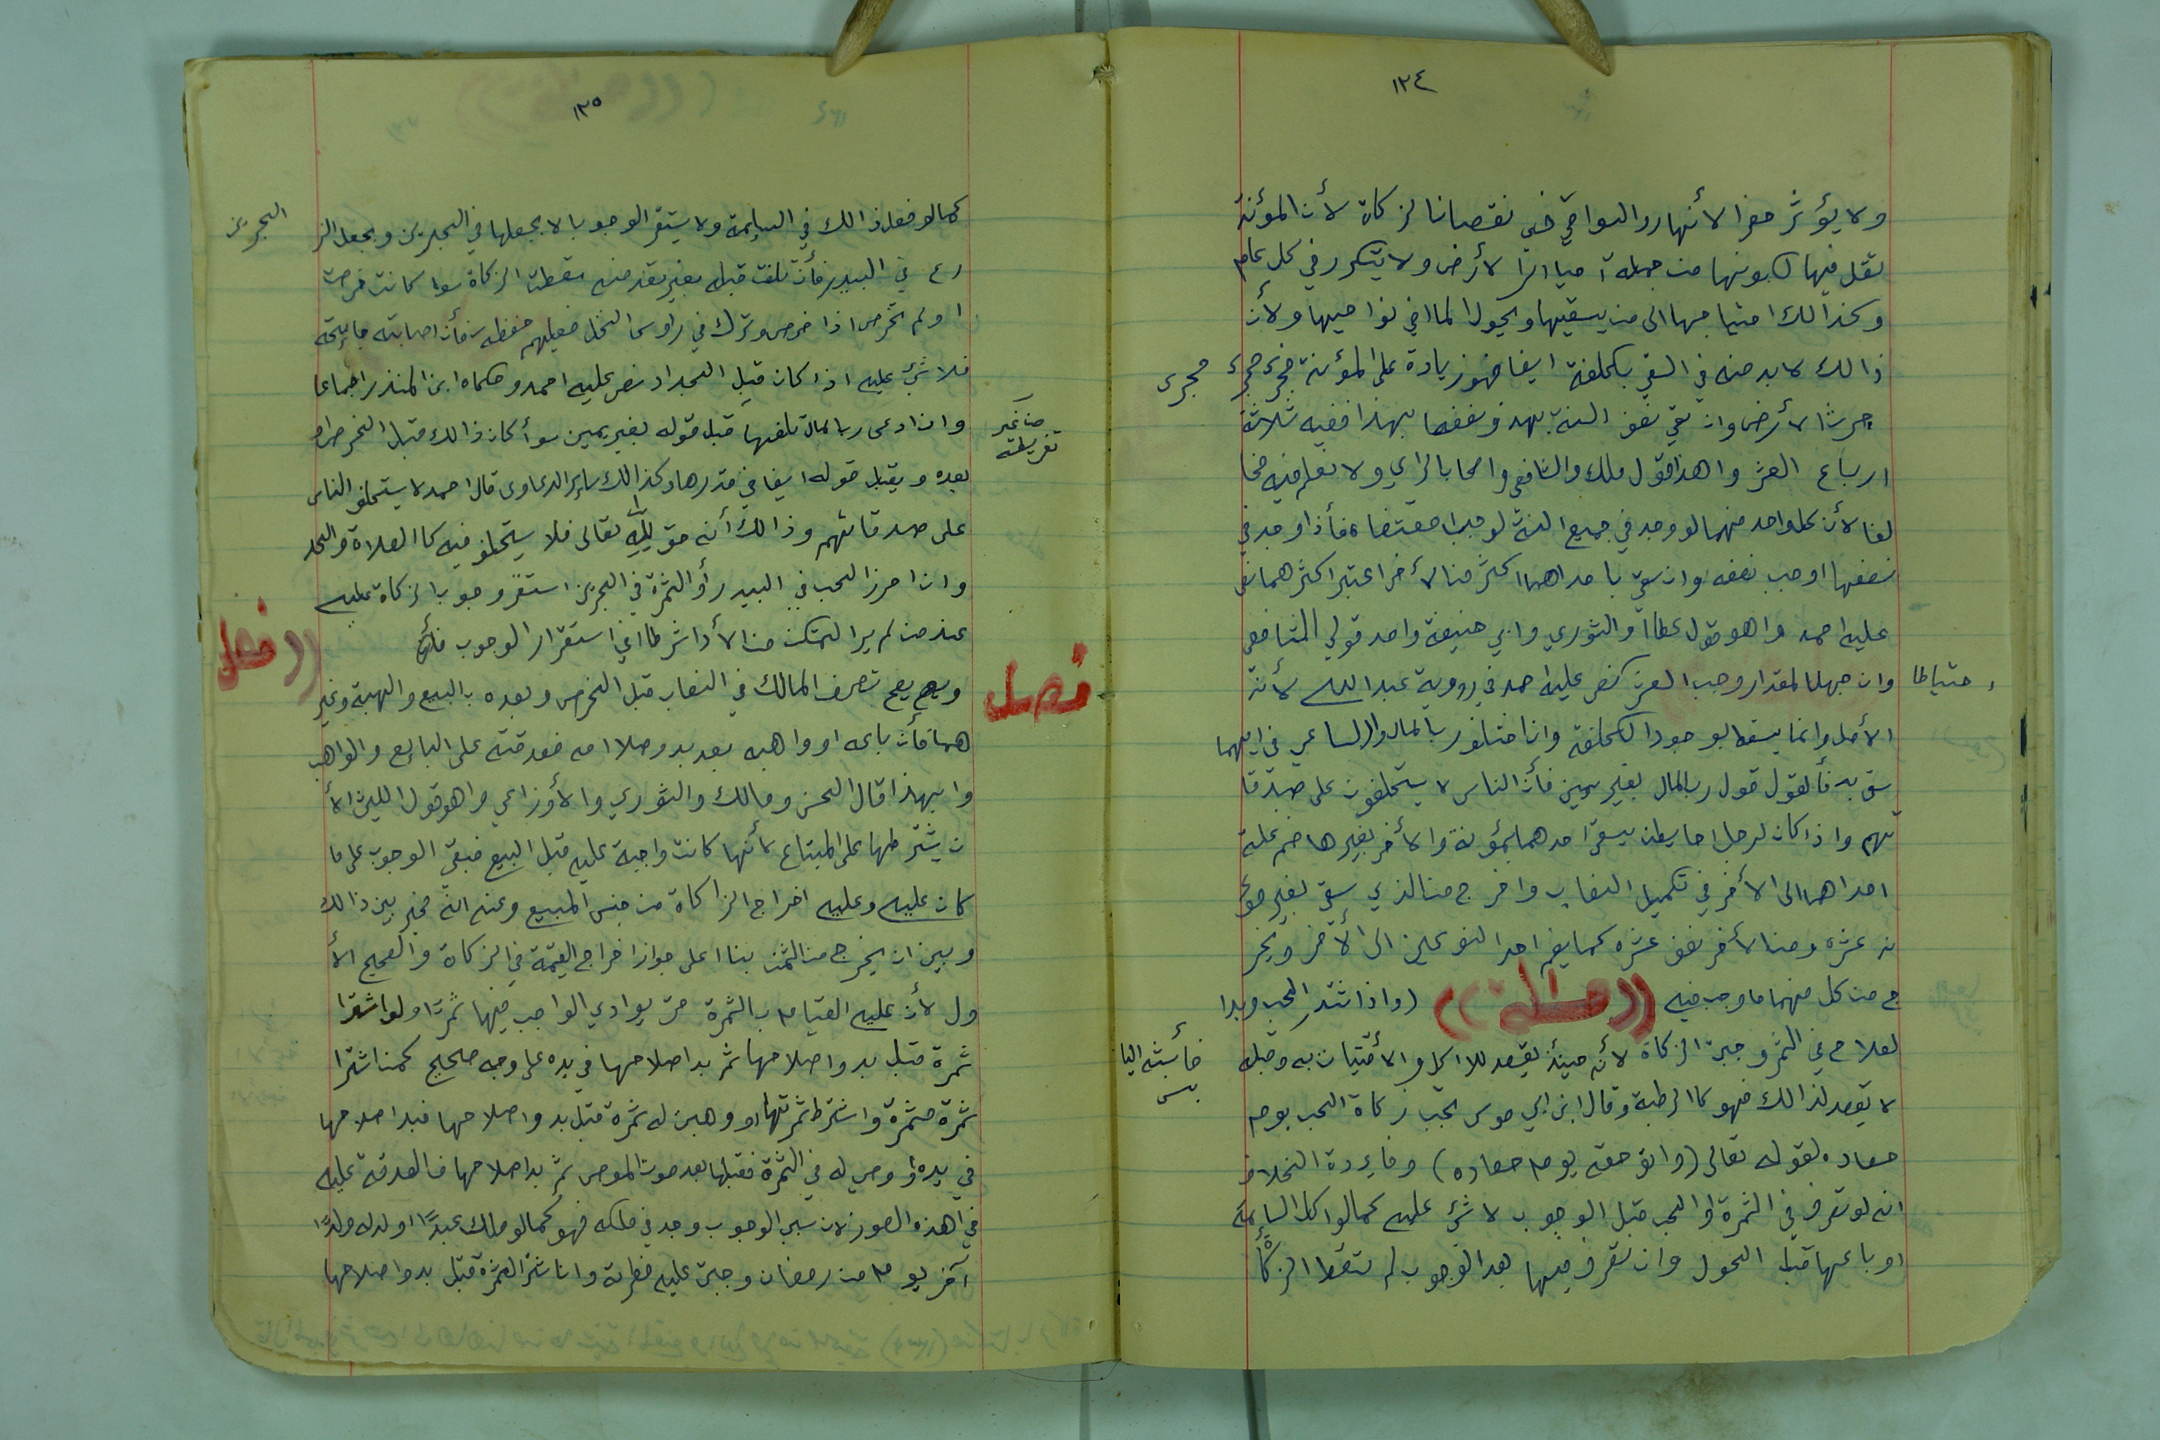 ١٢٤
ولا يؤثر حفر الأنهار والسواقي في نقصان الزكاة لأن المؤنة
تقل فيها لكونها من جملة احيا الأرض ولا يتكرر في كل عام
وكذالك احتياجها الى من يسقيها ويحول الما في نواحيها ولأن
ذالك لا بد منه في السقي بكلفة ايضا فهو زيادة على المؤنة فجرى مجرى
حرث الأرض وان سقي نصف السنة بهذ ونصفها بهذا ففيه ثلاثة
ارباع العشر واهذا قول ملك والشافعي واصحاب الراي ولا نعلم فيه مخا
لفا لأن كلواحد منهما لو وجد في جميع السنة لوجب مقتضاه فأذا وجد في
نصفها اوجب نصفه وان سقي باحداهما اكثر من الأخر اعتبر اكثرهما نص
عليه احمد واهو قول عطا والثوري وابي حنيفة واحد قولي الشافعي
وان جهل المقدار وجب العشر نص عليه احمد في رووية عبد الله لأنه
الأصل وانما يسقط بوجود الكلفة وان اختلف رب المال والساعي في ايهما
سقى به فألقول قول رب المال بغير يمين فأن الناس لا يستحلفون على صدقا
تهم واذ كان لرجل حايطان يسقى احدهما بمؤنة والأخر بغيرها ضم غلة
احداهما الى الأخر في تكميل النصاب واخرج من الذي سقي بغير مؤ
نه عشره ومن الأخر نصف عشره كما يضم احد النوعين الى الأخر ويخر
ج من كل منهما ما وجب فيه ((مسألة)) (واذ اشتد الحب وبدا
لصلاح في الثمر وجبة الزكاة لأنه حينئذ يقصد للاكل والأقتيات به وقبله
لا يقصد لذالك فهو كا الرطبة وقال ابن ابي موسى تجب زكاة الحب يوم
حصاده لقوله تعالى (واتو حقه يوم حصاده) وفايدة الخلاف
انه لو تصرف في الثمرة او الحب قبل الوجوب لا شئ عليه كما لو اكل السايمة
او باعها قبل الحول وان تصرف فيها بعد الوجوب لم تسقط الزكاة
مجرى
حتياطا
فأشبه اليا
بس
١٢٥
كما لو فعل ذالك في السايمة ولا يستقر الوجوب الا بجعلها في الجرين وبجعل الز
رع في البيدر فأن تلفت قبله بغير تعد منه سقطت الزكاة سوا كانت خرصت
او لم تخرص اذا خرص وترك في راوس النخل فعليهم حفظه فأن اصابته جايحة
فلا شئ عليه اذا كان قبل الجداد نص عليه احمد وحكاه ابن المنذر اجماعا
وان ادعى رب المال تلفها قبل قوله بغير يمين سوأ كان ذالك قبل الخرص او
بعده ويقبل قوله ايضا في قدرها وكذالك ساير الدعاوى قال احمد لا يستحلف الناس
على صدقاتهم وذالك أنه حق لله تعالى فلا يستحلف فيه كا الصلاة والحد
وان احرز الحب في البيدر أو الثمرة في الجرين استقر وجوب الزكاة عليه
عند من لم ير التمكن من الأداشرطا في استقرار الوجوب
ويصح تصرف المالك في النصاب قبل الخرص وبعده بالبيع والهبة وغير
هما فأن باعه او واهبه بعد بدو صلاحه فصدقته على البايع والواهب
وابهذا قال الحسن ومالك والثوري والأوزاعي واهو قول الليث الأ
ن يشترطها على المبتاع لأنها كانت واجبة عليه قبل البيع فبقى الوجوب على ما
كان عليه وعليه اخراج الزاكاة من جنس المبيع وعنه انه مخير بين ذالك
وبين ان يخرج من الثمن بناا على جواز اخراج القيمة في الزكاة والصحيح الأ
ول لأن عليه القيام بالثمرة حتى يوادي الواجب فيها ثمرتا ولو اشترا
ثمرة قبل بدو اصلاحها ثم بدا صلاحها في يده على وجه صحيح كمن اشترا
ثمرة مثمرة واشترط ثمرتها او وهبن له ثمرة قبل بدو اصلاحها فبدا صلاحها
في يده أو وصي له في الثمرة فقبلها بعد موت الموصي ثم بدا صلاحها فالصدقة عليه
في اهذه الصور لان سبب الوجوب وجد في ملكه فهو كما لو ملك عبدًا او لد له ولدًا
آخر يوم من رمضان وجبت عليه فطرته وان اشترا ثمرة قبل بدو اصلاحها
من غير
تفريطه
فصل
الجرين
((فصل